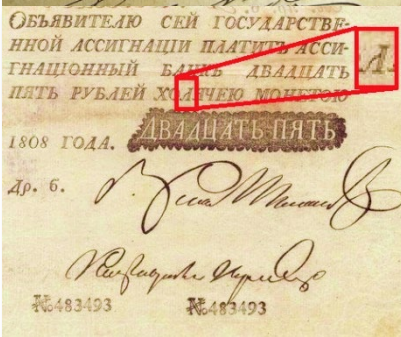 Объявителю сей государствен-
ной ассигнацiи платитъ асси-
гнацiонный банкъ двадцать
пять рублей холячею монетою
Л
ДВАДЦАТЬ ПЯТЬ
1808 года.
Др. б.
№483493 №483493